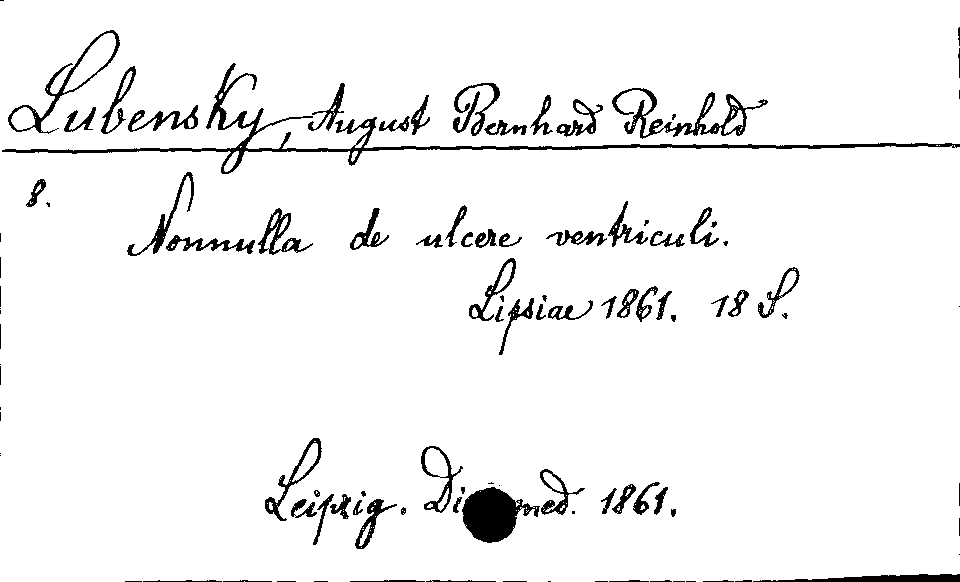 Lubensky, August Bernhard Reinhold
8.
Nonnulla de ulcere ventriculi.
Lipsiae 1861. 18 S.
Leipzig. Di med. 1861.